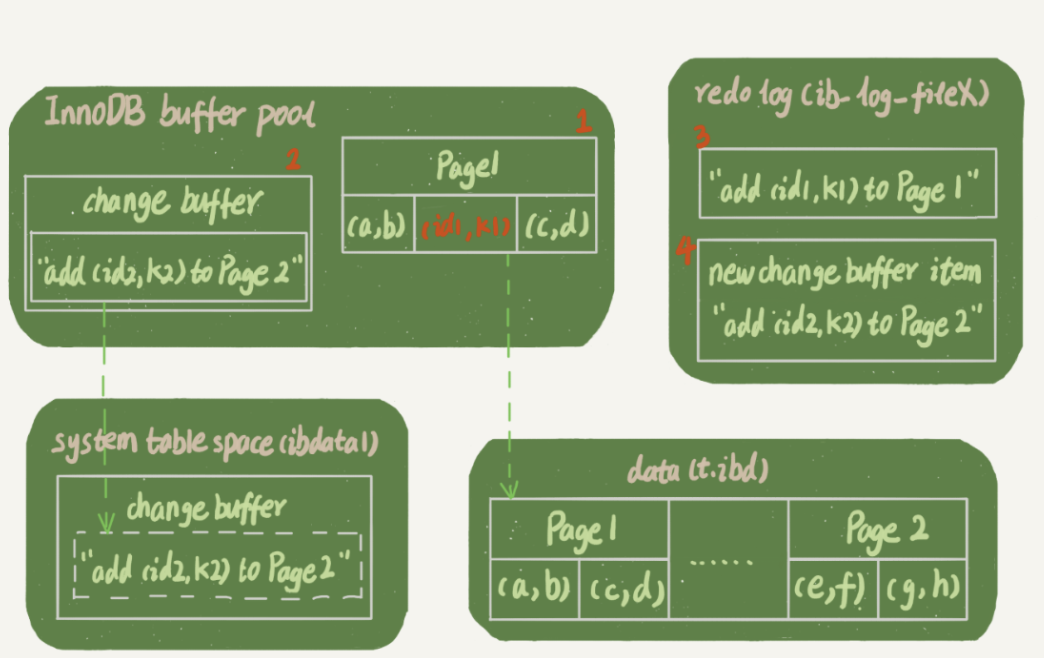 InnoDB buffer pool
1
2
change buffer
"add (id2, k2) to Page 2"
Page1
(a,b) (id1, k1) (c,d)
redo log (ib_log_fileX)
3
"add (id1, k1) to Page 1"
4
new change buffer item
"add (id2, k2) to Page 2"
system table space (ibdata1)
change buffer
"add (id2, k2) to Page 2"
data (t.ibd)
Page 1
......
Page 2
(a,b) (c,d) (e,f) (g,h)